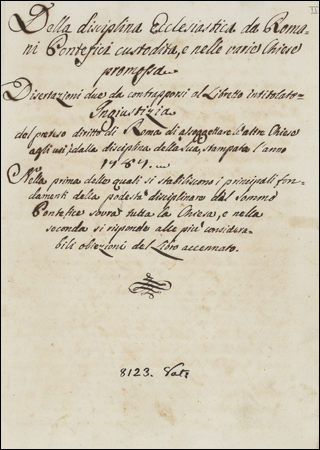 Della disciplina Ecclesiastica da Roma-
ni Pontefici custodita, e nelle varie Chiese
promossa
Disertazioni due da contrapporsi al Libretto intitolato-
Ingiustizia
del preteso diritto di Roma di assoggettare l'altre Chiese
agli usi, dalla disciplina della Sua, stampata l'anno
1764.
Nella prima delle quali si stabiliscono i principali fon-
damenti della podestà disciplinare del sommo
Pontefice sovra tutta la Chiesa, e nella
seconda si risponde alle più considera-
bili obiezioni del Libro accennato.
8123. Vat.